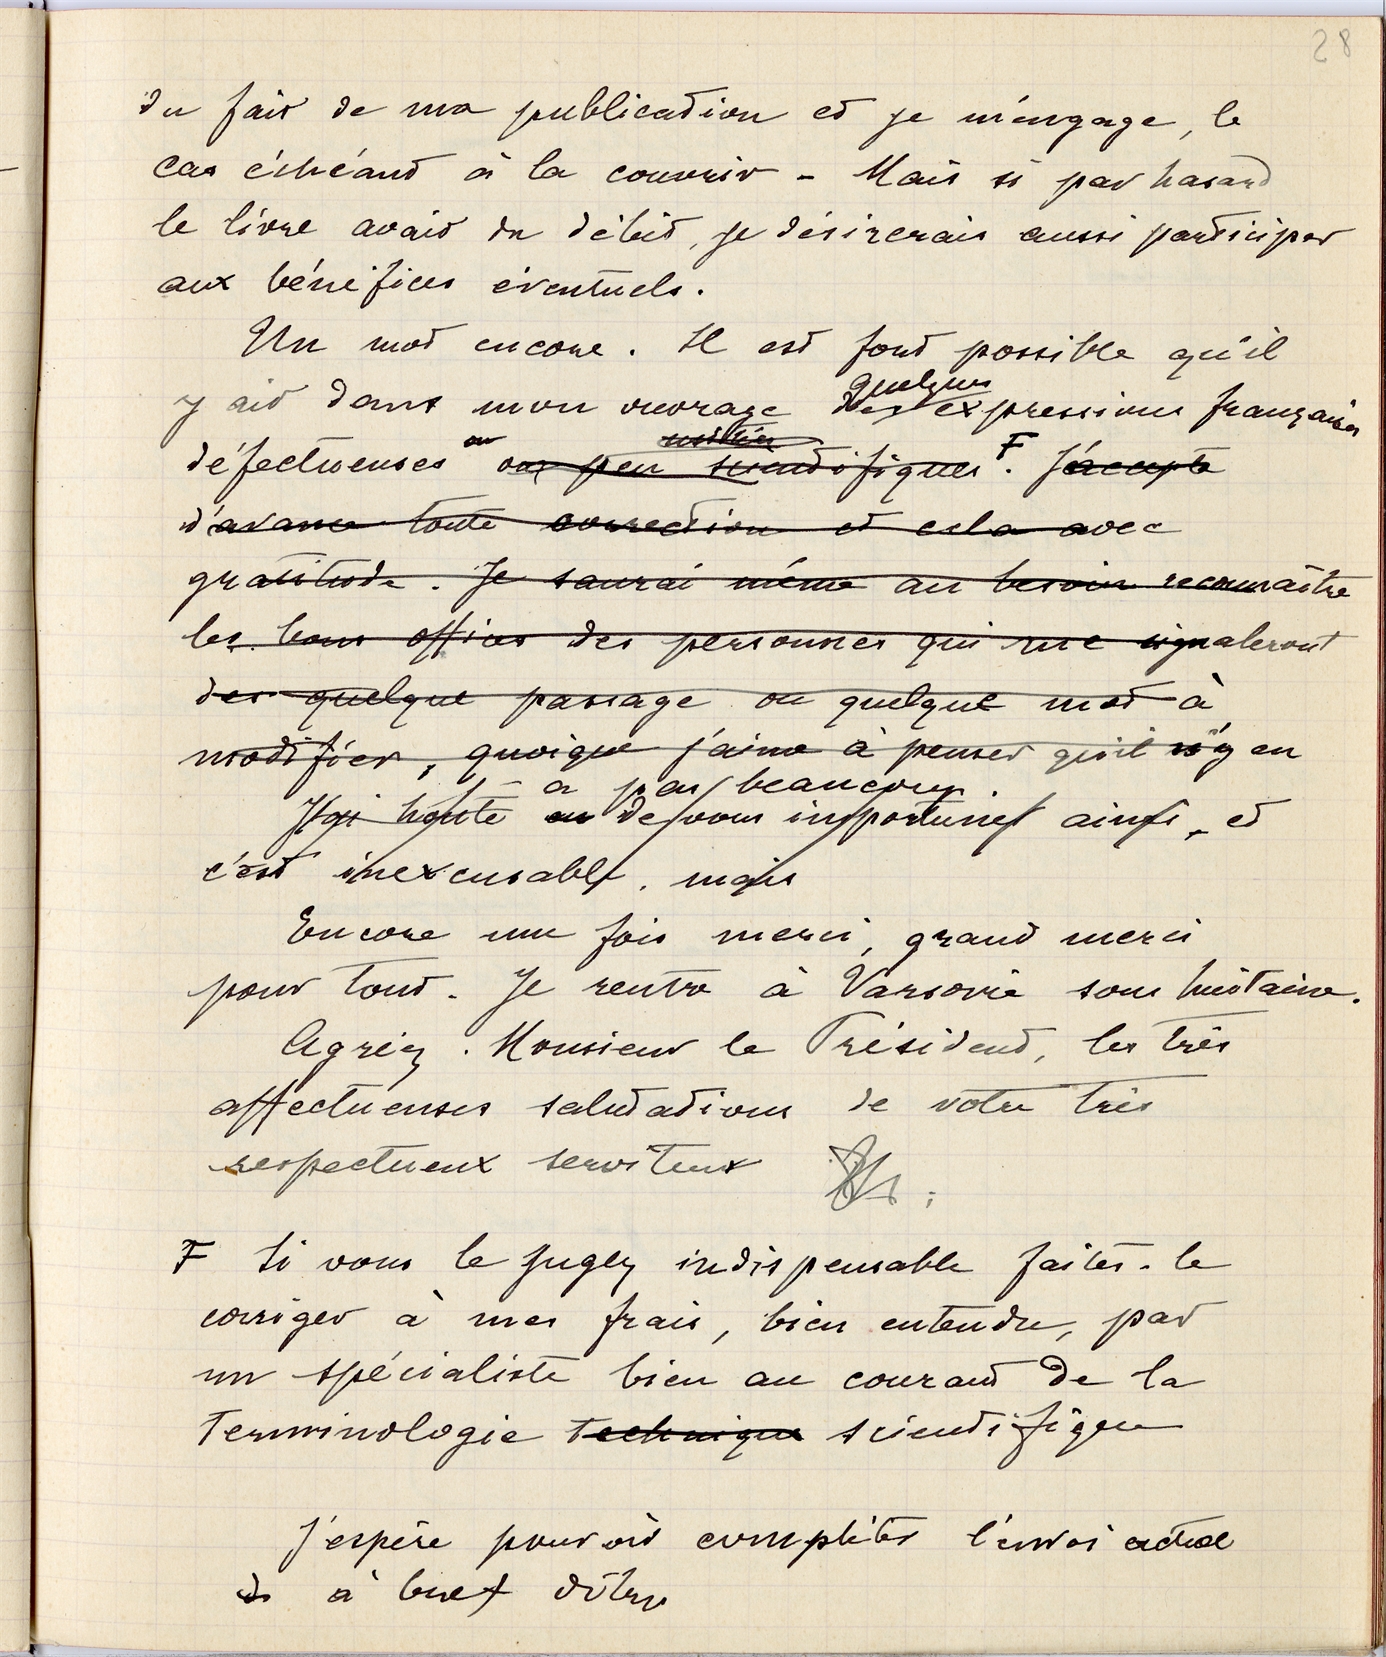 28
du fait de ma publication et je m'engage, le
cas échéant à la couvrir - Mais si par hasard
le livre avait du débit, je désirerais aussi participer
aux bénéfices éventuels.
Un mot encore. Il est fort possible qu'il
quelques
y ait dans mon ouvrage des expressions françaises
défectueuses ou peu scientifiques F. J'accepte
d'avance toute correction et cela avec
gratitude. Je saurai même au besoin reconnaître
les bons offices des personnes qui me signaleront
des quelque passage ou quelque mot à
modifier, quoique j'aime à penser qu'il n'y en
a pas beaucoup.
J'ai honte de vous importuner ainsi, et
c'est inexcusable, mais
Encore une fois merci, grand merci
pour tout. Je rentre à Varsovie sous huitaine.
Agréez. Monsieur le Président, les très
affectueuses salutations de votre très
respectueux serviteur
F Si vous le jugez indispensable faites-le
corriger à mes frais, bien entendu, par
un spécialiste bien au courant de la
terminologie technique scientifique
J'espère pouvoir compléter l'envoi actuel
à bref délai